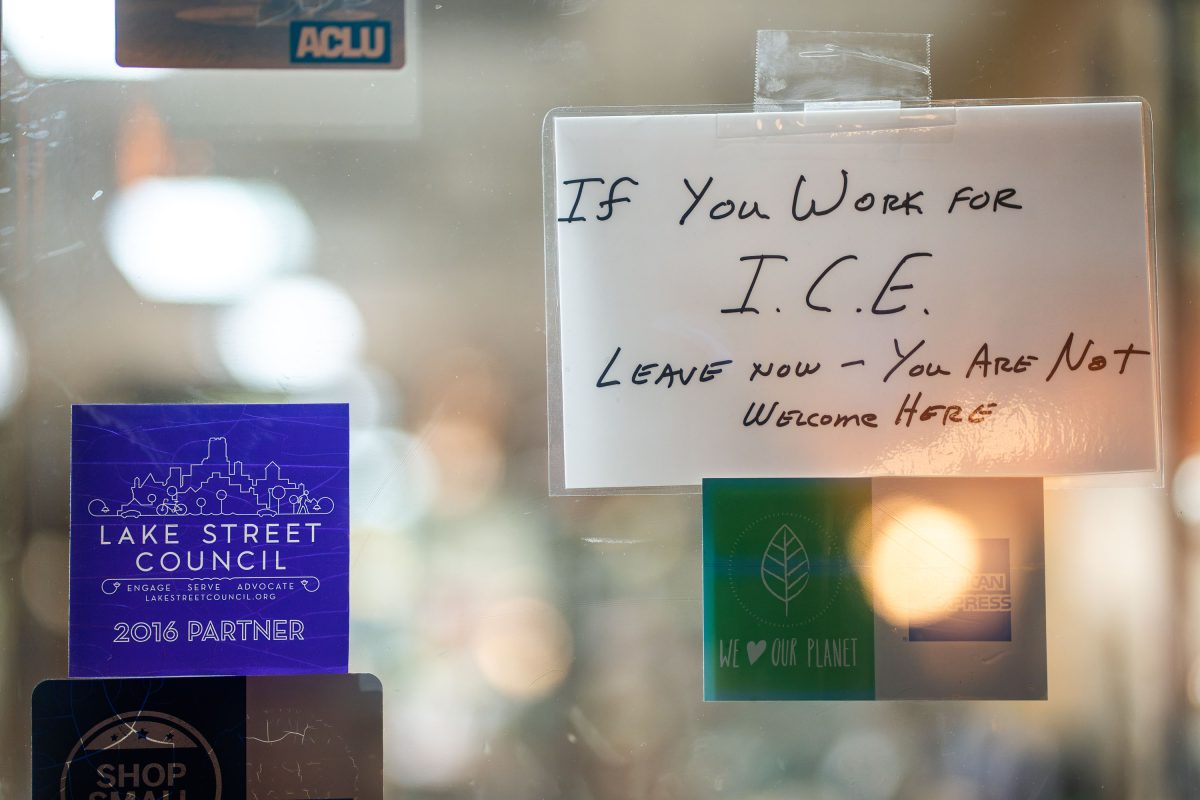 ACLU
If You Work FOR
I.C.E.
LEAVE NOW – You ARE NOT
Welcome HERE
LAKE STREET
COUNCIL
ENGAGE SERVE ADVOCATE
LAKESTREETCOUNCIL.ORG
2016 PARTNER
WE ♥ OUR PLANET
SHOP